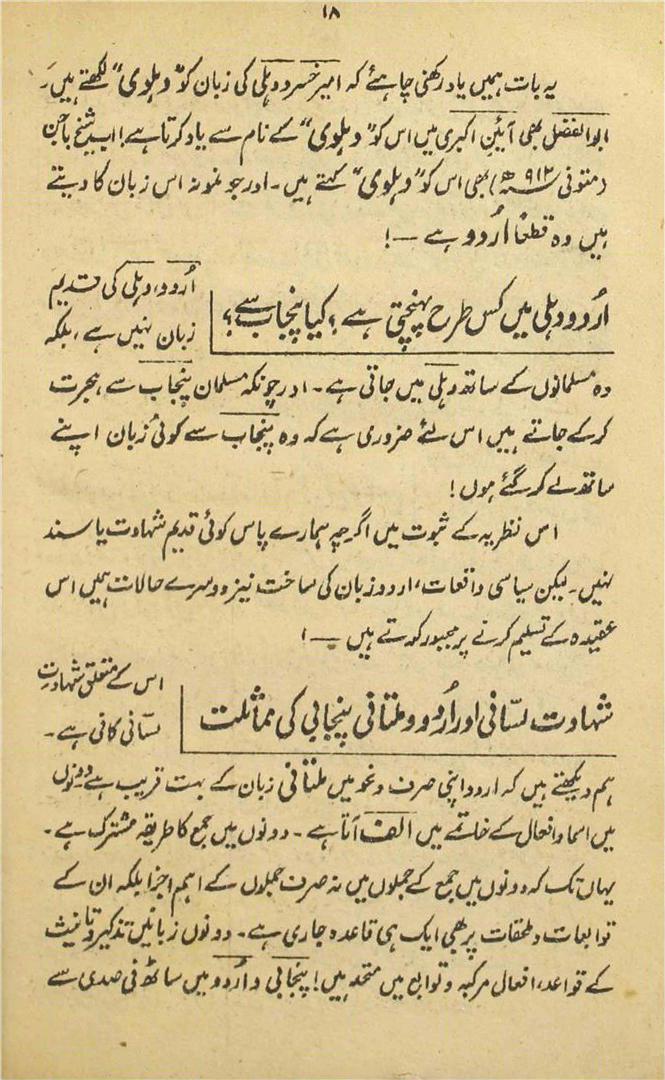 ۱۸
یہ بات ہمیں یاد رکھنی چاہئے کہ امیر خسرو دہلی کی زبان کو "دہلوی" لکھتے ہیں۔
ابوالفضل بھی آئین اکبری میں اس کو "دہلوی" کے نام سے یاد کرتا ہے! اب شیخ باجن
(متوفی ۹۱۲ھ) بھی اس کو "دہلوی" کہتے ہیں۔ اور جو نمونہ اس زبان کا دیتے
ہیں وہ قطعاً اُردو ہے ــ!
اُردو دہلی میں کس طرح پہنچتی ہے؟ کیا پنجاب سے؟
اُردو، دہلی کی قدیم
زبان نہیں ہے، بلکہ
وہ مسلمانوں کے ساتھ دہلی میں جاتی ہے۔ اور چونکہ مسلمان پنجاب سے ہجرت
کر کے جاتے ہیں اس لئے ضروری ہے کہ وہ پنجاب سے کوئی زبان اپنے
ساتھ لے کر گئے ہوں!
اس نظریہ کے ثبوت میں اگرچہ ہمارے پاس کوئی قدیم شہادت یا سند
نہیں۔ لیکن سیاسی واقعات، اردو زبان کی ساخت نیز دوسرے حالات ہمیں اس
عقیدہ کے تسلیم کرنے پر مجبور کرتے ہیں ــ!
شہادت لسانی اور اُردو و ملتانی پنجابی کی مماثلت
اس کے متعلق شہادتِ
لسانی کافی ہے۔
ہم دیکھتے ہیں کہ اردو اپنی صرف و نحو میں ملتانی زبان کے بہت قریب ہے دونوں
میں اسما و افعال کے خاتمے میں الف آتا ہے۔ دونوں میں جمع کا طریقہ مشترک ہے۔
یہاں تک کہ دونوں میں جمع کے جملوں میں نہ صرف جملوں کے اہم اجزا بلکہ ان کے
توابعات و ملحقات پر بھی ایک ہی قاعدہ جاری ہے۔ دونوں زبانیں تذکیر و تانیث
کے قواعد، افعال مرکبہ و توابع میں متحد ہیں! پنجابی و اُردو میں ساٹھ فی صدی سے